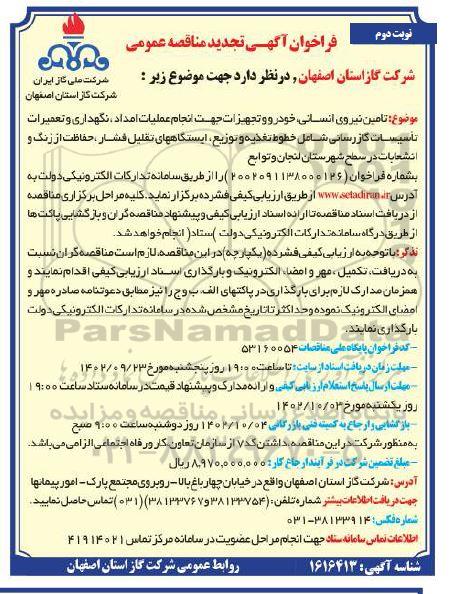 نوبت دوم
فراخوان آگهی تجدید مناقصه عمومی
شرکت ملی گاز ایران
شرکت گاز استان اصفهان
شرکت گاز استان اصفهان, در نظر دارد جهت موضوع زیر :
موضوع: تامین نیروی انسانی، خودرو و تجهیزات جهت انجام عملیات امداد، نگهداری و تعمیرات
تأسیسات گازرسانی شامل خطوط تغذیه و توزیع، ایستگاههای تقلیل فشار، حفاظت از زنگ و
انشعابات در سطح شهرستان لنجان و توابع
بشماره فراخوان (۲۰۰۲۰۹۱۱۳۸۰۰۰۱۲۶) را از طریق سامانه تدارکات الکترونیکی دولت به
آدرس www.setadiran.ir از طریق ارزیابی کیفی فشرده برگزار نماید. کلیه مراحل برگزاری مناقصه
از دریافت اسناد مناقصه تا ارائه اسناد ارزیابی کیفی و پیشنهاد مناقصه گران و بازگشایی پاکت ها
از طریق درگاه سامانه تدارکات الکترونیکی دولت (ستاد) انجام خواهد شد.
تذکر: با توجه به ارزیابی کیفی فشرده (یکپارچه) در این مناقصه، لازم است مناقصه گران نسبت
به دریافت، تکمیل، مهر و امضاء الکترونیک و بارگذاری اسناد ارزیابی کیفی اقدام نمایند و
همزمان مدارک لازم برای بارگذاری در پاکتهای الف، ب و ج را نیز مطابق دعوتنامه صادره مهر و
امضای الکترونیک نموده و حداکثر تا تاریخ مشخص شده در سامانه تدارکات الکترونیکی دولت
بارگذاری نمایند.
- کد فراخوان پایگاه ملی مناقصات ۵۳۱۶۰۰۵۴
- مهلت زمان دریافت اسناد از سایت: تا ساعت ۱۹:۰۰ روز پنجشنبه مورخ ۱۴۰۲/۰۹/۲۳
- مهلت ارسال پاسخ استعلام ارزیابی کیفی و ارائه مدارک و پیشنهاد قیمت در سامانه ستاد ساعت ۱۹:۰۰
روز یکشنبه مورخ ۱۴۰۲/۱۰/۰۳
- بازگشایی و ارجاع به کمیته فنی بازرگانی ۱۴۰۲/۱۰/۰۴ روز دوشنبه ساعت ۹:۰۰ صبح
به منظور شرکت در این مناقصه، داشتن کد ۷ از سازمان تعاون، کار و رفاه اجتماعی الزامی می باشد.
- مبلغ تضمین شرکت در فرآیند ارجاع کار: ۸,۹۷۰,۰۰۰,۰۰۰ ریال
آدرس: شرکت گاز استان اصفهان واقع در خیابان چهارباغ بالا - روبروی مجتمع پارک - امور پیمانها
جهت دریافت اطلاعات بیشتر شماره تلفن: (۳۸۱۳۳۷۵۴ و ۳۸۱۳۳۷۶۷) (۰۳۱) تماس حاصل نمایید.
شماره فکس: ۳۸۱۳۳۹۱۴-۰۳۱
اطلاعات تماس سامانه ستاد جهت انجام مراحل عضویت در سامانه مرکز تماس ۴۱۹۱۴۰۲۱
شناسه آگهی: ۱۶۱۶۴۱۳
روابط عمومی شرکت گاز استان اصفهان
ParsNamadData